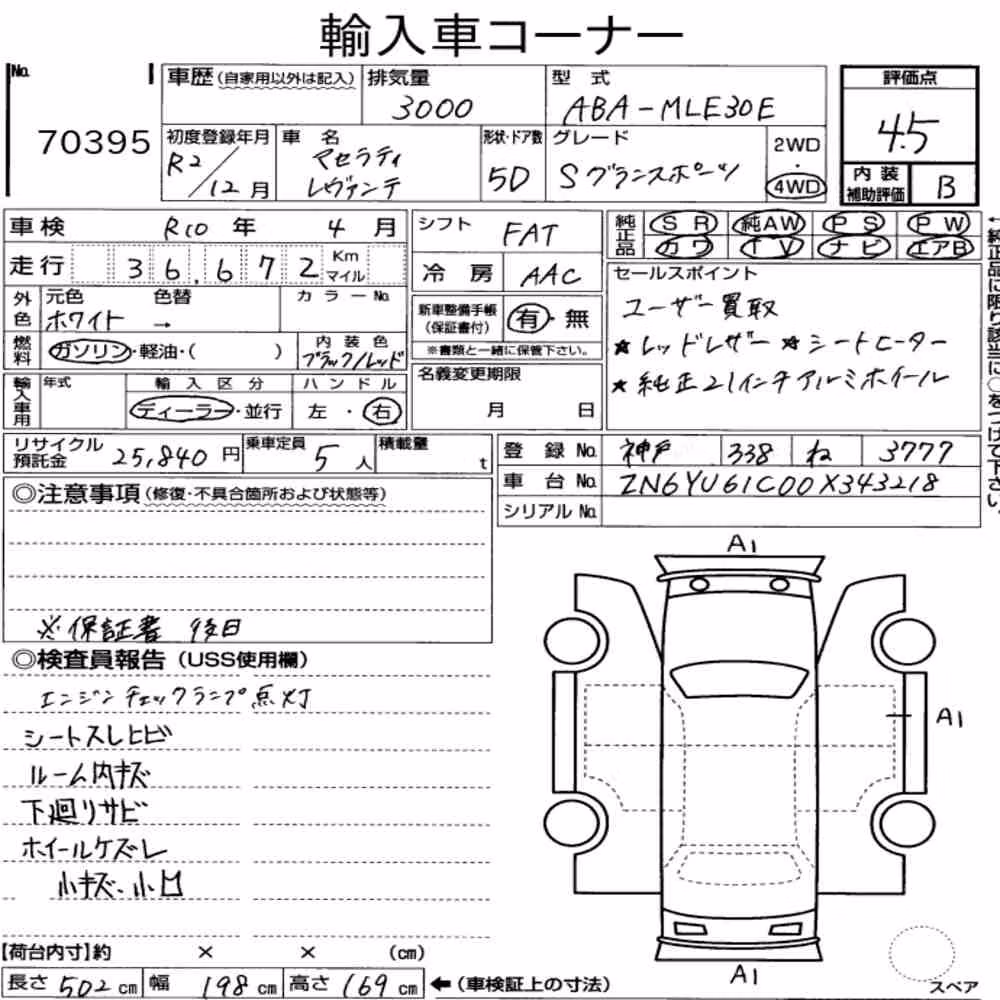 輸入車コーナー
No.
70395
車歴 (自家用以外は記入)
排気量
3000
型式
ABA-MLE30E
評価点
4.5
初度登録年月
R2/12月
車名
マセラティ
レヴァンテ
形状・ドア数
5D
グレード
Sグランスポーツ
2WD
・
4WD
内装
補助評価
B
車検 R10年 4月
シフト FAT
純正品
SR 純AW PS PW
カワ TV ナビ エアB
走行 36,672 Km マイル
冷房 AAC
セールスポイント
ユーザー買取
★レッドレザー ★シートヒーター
★純正21インチアルミホイール
外色 元色 色替 カラーNo.
ホワイト →
新車整備手帳
(保証書付)
有・無
※書類と一緒に保管下さい。
燃料 ガソリン・軽油・( )
内装色
ブラック/レッド
名義変更期限
月 日
輸入車用
年式
輸入区分
ディーラー・並行
ハンドル
左・右
←純正品に限り該当に○をつけて下さい。
リサイクル
預託金 25,840円
乗車定員 5人
積載量 t
登録No. 神戸 338 ね 3777
車台No. ZN6YU61C00X343218
シリアルNo.
◎注意事項(修復・不具合箇所および状態等)
※保証書 後日
◎検査員報告(USS使用欄)
エンジンチェックランプ点灯
シートスレヒビ
ルーム内キズ
下廻りサビ
ホイールケズレ
小キズ・小凹
A1
A1
A1
【荷台内寸】約 × × (cm)
長さ502cm 幅198cm 高さ169cm ←(車検証上の寸法)
スペア